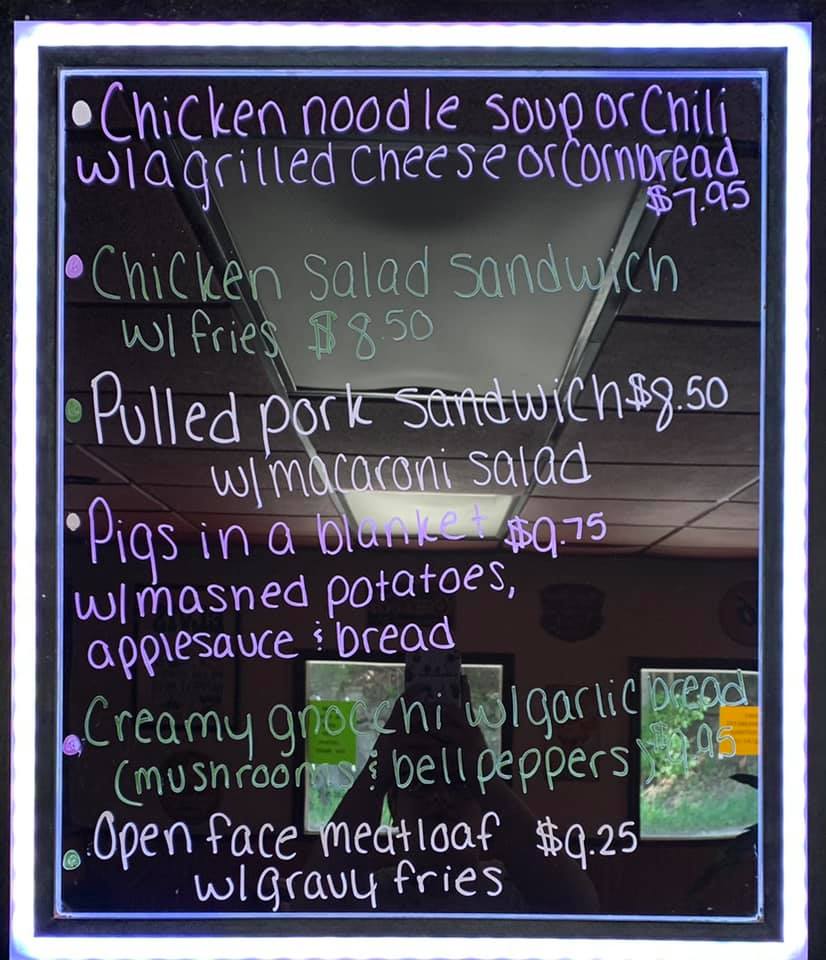 • Chicken noodle soup or Chili
w/ a grilled cheese or Cornbread
$7.95
• Chicken Salad Sandwich
w/ fries $8.50
• Pulled pork sandwich $8.50
w/ macaroni salad
• Pigs in a blanket $9.75
w/ mashed potatoes,
applesauce & bread
• Creamy gnocchi w/ garlic bread
(mushrooms & bell peppers) $9.95
• Open face meatloaf $9.25
w/ gravy fries